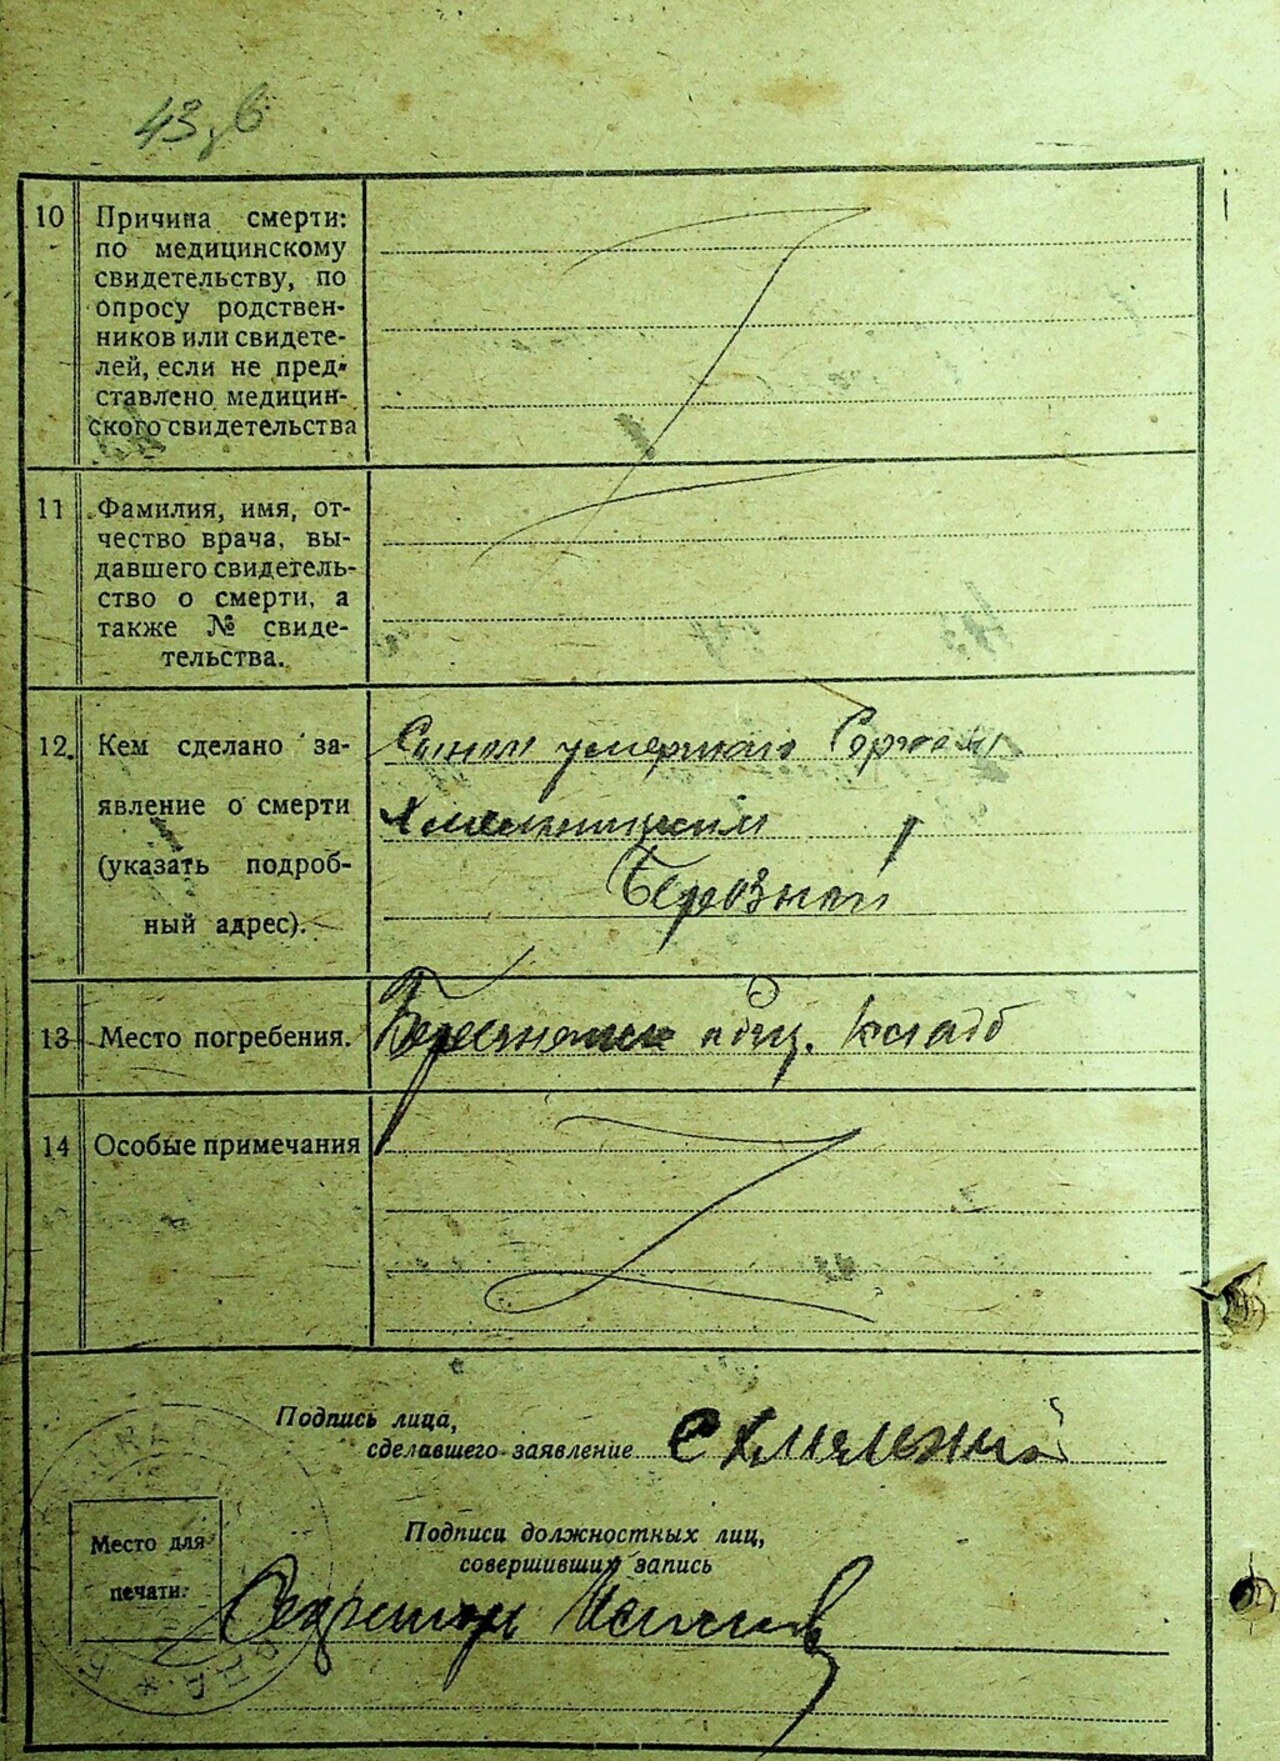 10 Причина смерти:
по медицинскому
свидетельству, по
опросу родствен-
ников или свидете-
лей, если не пред-
ставлено медицин-
ского свидетельства
11 Фамилия, имя, от-
чество врача, вы-
давшего свидетель-
ство о смерти, а
также № свиде-
тельства.
12. Кем сделано за-
явление о смерти
(указать подроб-
ный адрес).
Сыном умершаго
13 Место погребения.
кладб
14 Особые примечания
Подпись лица,
сделавшего заявление
Подписи должностных лиц,
совершивших запись
Место для
печати.
Секретарь